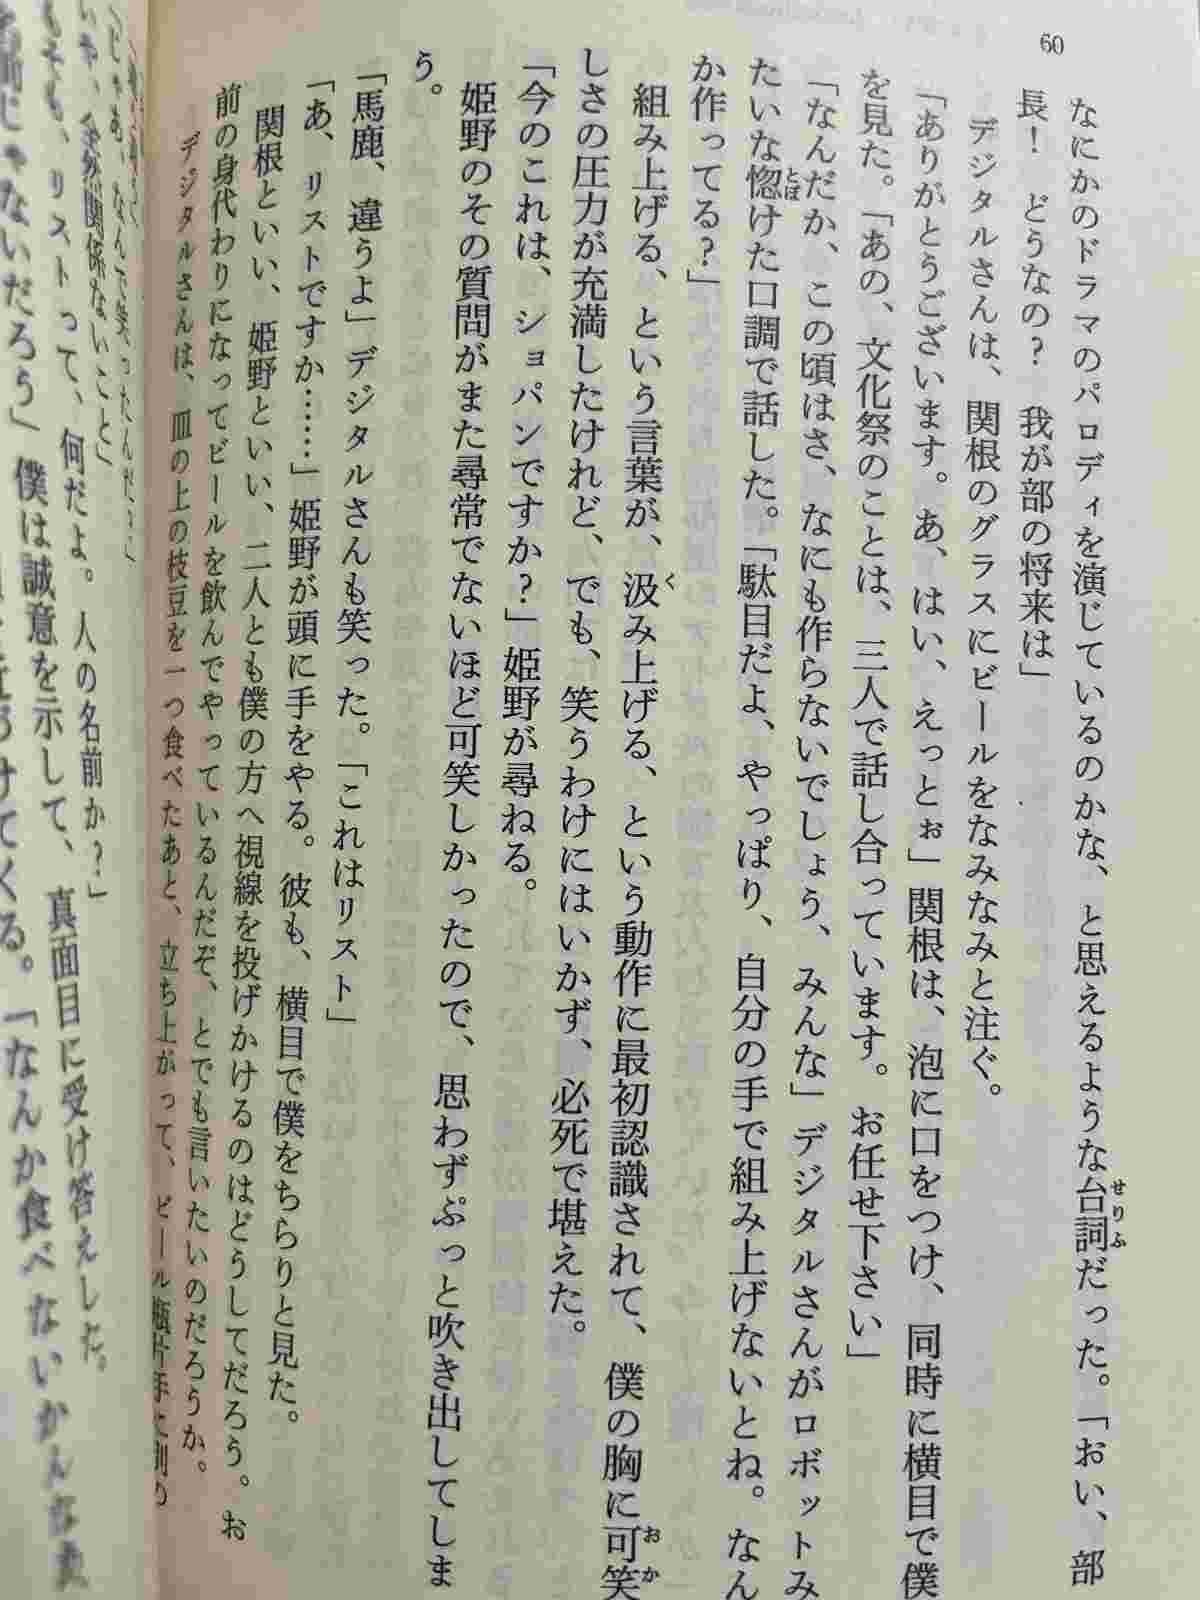 60
なにかのドラマのパロディを演じているのかな、と思えるような台詞だった。「おい、部
長！　どうなの？　我が部の将来は」
デジタルさんは、関根のグラスにビールをなみなみと注ぐ。
「ありがとうございます。あ、はい、えっとぉ」関根は、泡に口をつけ、同時に横目で僕
を見た。「あの、文化祭のことは、三人で話し合っています。お任せ下さい」
「なんだか、この頃はさ、なにも作らないでしょう、みんな」デジタルさんがロボットみ
たいな惚けた口調で話した。「駄目だよ、やっぱり、自分の手で組み上げないとね。なん
か作ってる？」
組み上げる、という言葉が、汲み上げる、という動作に最初認識されて、僕の胸に可笑
しさの圧力が充満したけれど、でも、笑うわけにはいかず、必死で堪えた。
「今のこれは、ショパンですか？」姫野が尋ねる。
姫野のその質問がまた尋常でないほど可笑しかったので、思わずぷっと吹き出してしま
う。
「馬鹿、違うよ」デジタルさんも笑った。「これはリスト」
「あ、リストですか……」姫野が頭に手をやる。彼も、横目で僕をちらりと見た。
関根といい、姫野といい、二人とも僕の方へ視線を投げかけるのはどうしてだろう。お
前の身代わりになってビールを飲んでやっているんだぞ、とでも言いたいのだろうか。
デジタルさんは、皿の上の枝豆を一つ食べたあと、立ち上がって、ビール瓶片手に別の
「じゃあ、なんで笑ったんだよ」
いや、全然関係ないこと」
リストって、何だよ。人の名前か？」
じゃないだろう」僕は誠意を示して、真面目に受け答えした。
けてくる。「なんか食べないかんなま